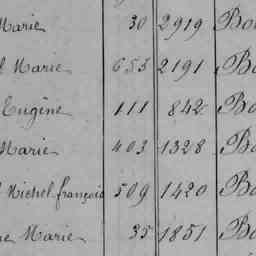 Marie 30 2919 Bo
l Marie 653 2191 Bo
Eugène 111 842 Bo
Marie 403 1328 Bo
l Michel françois 509 1420 Bo
ne Marie 35 1851 Bo